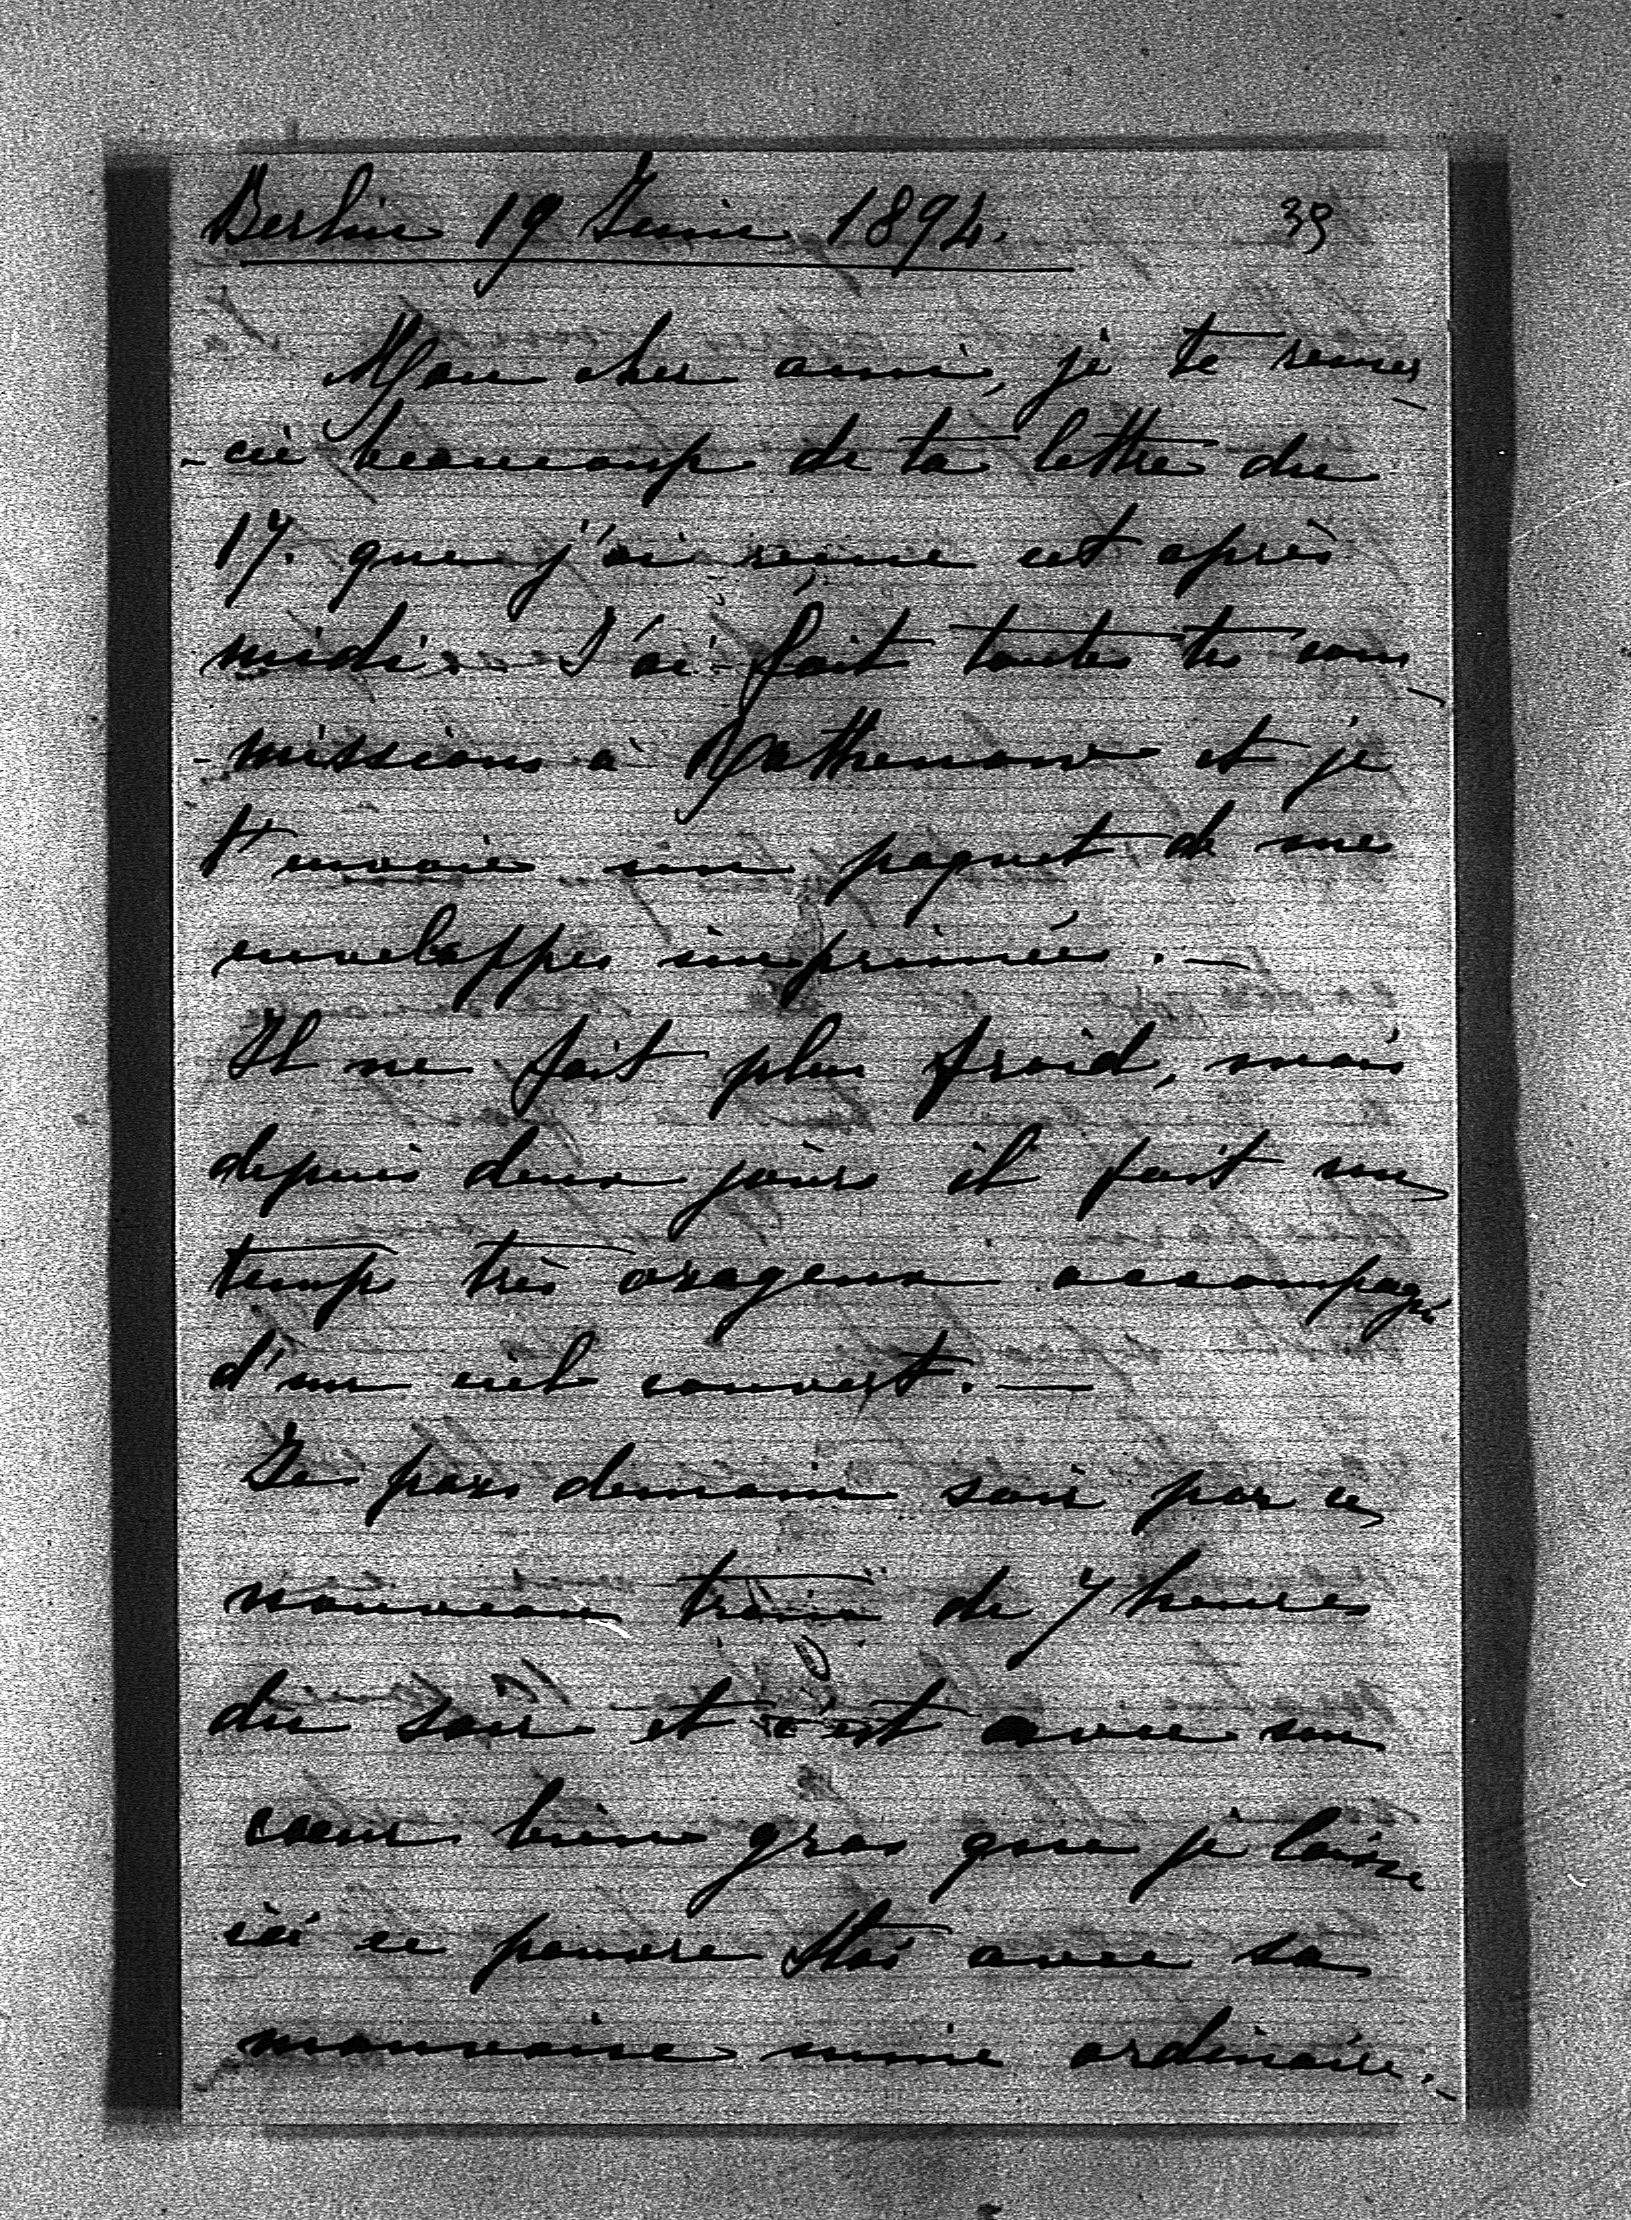 Berlin 19 Juin 1894. 39
Mon cher ami, je te remer
-cie beaucoup de ta lettre du
17. que j'ai reçue cet après
midi. — J'ai fait toutes tes com
-missions à Rathenow et je
t'envoie un paquet de mes
enveloppes imprimées. —
Il ne fait plus froid, mais
depuis deux jours il fait un
temps très orageux accompagné
d'un ciel couvert. —
Je pars demain soir par ce
nouveau train de 7 heures
du soir et c'est avec un
coeur bien gros que je laisse
ici ce pauvre avec sa
mauvaise mine ordinaire. —